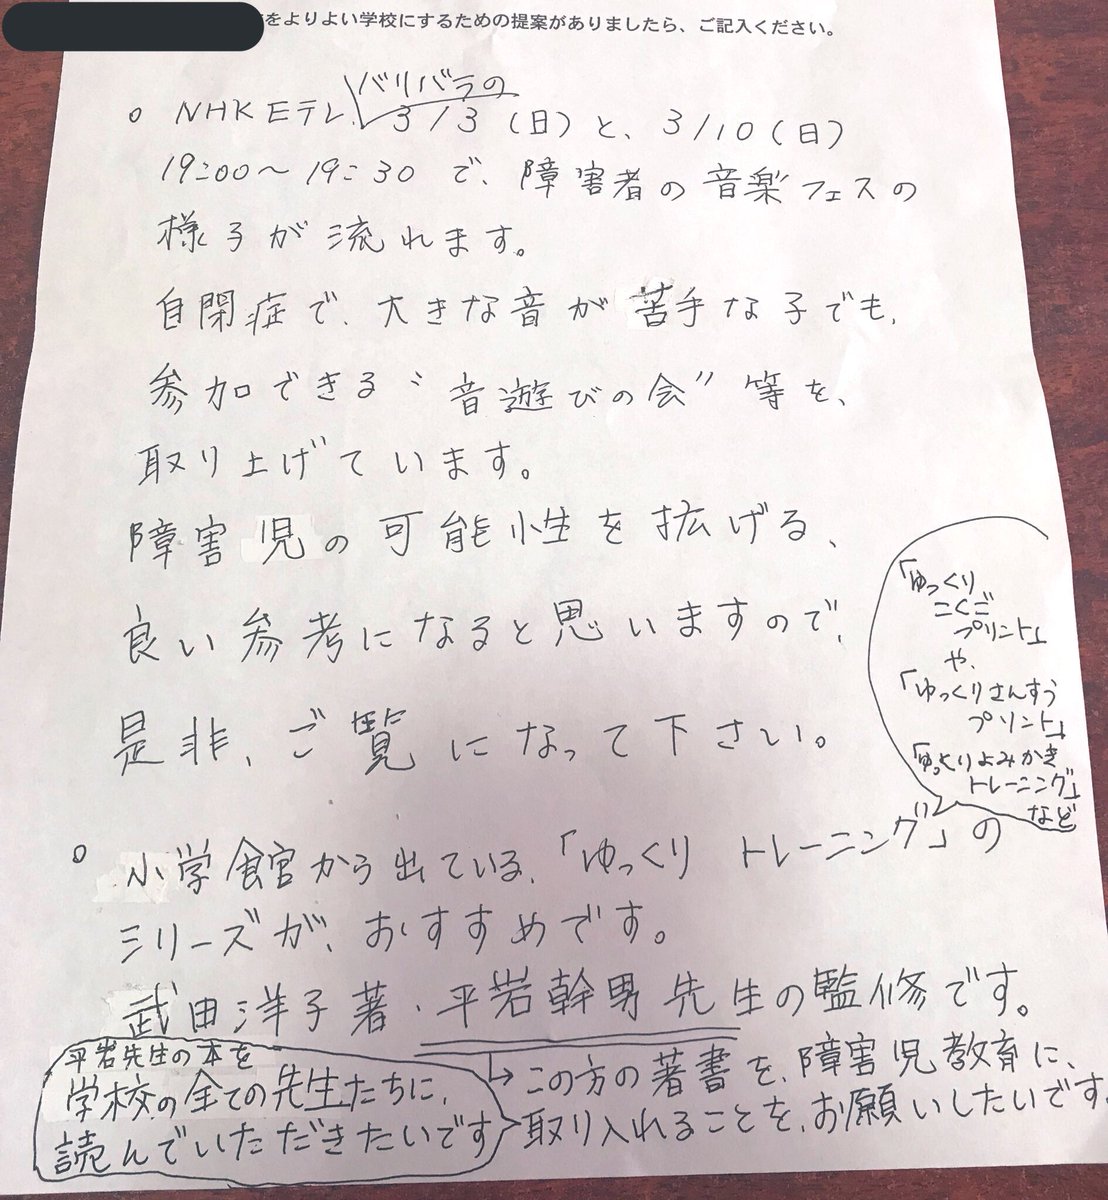 をよりよい学校にするための提案がありましたら、ご記入ください。
バリバラの
○ NHK Eテレ、3/3(日)と、3/10(日)
19:00〜19:30で、障害者の音楽フェスの
様子が流れます。
自閉症で、大きな音が苦手な子でも、
参加できる〝音遊びの会〟等を、
取り上げています。
障害児の可能性を拡げる、
良い参考になると思いますので、
是非、ご覧になって下さい。
「ゆっくり
こくご
プリント」
や、
「ゆっくりさんすう
プリント」
「ゆっくりよみかき
トレーニング」
など
○ 小学館から出ている、「ゆっくり トレーニング」の
シリーズが、おすすめです。
武田洋子著・平岩幹男先生の監修です。
→この方の著書を、障害児教育に、
取り入れることを、お願いしたいです。
平岩先生の本を
学校の全ての先生たちに、
読んでいただきたいです